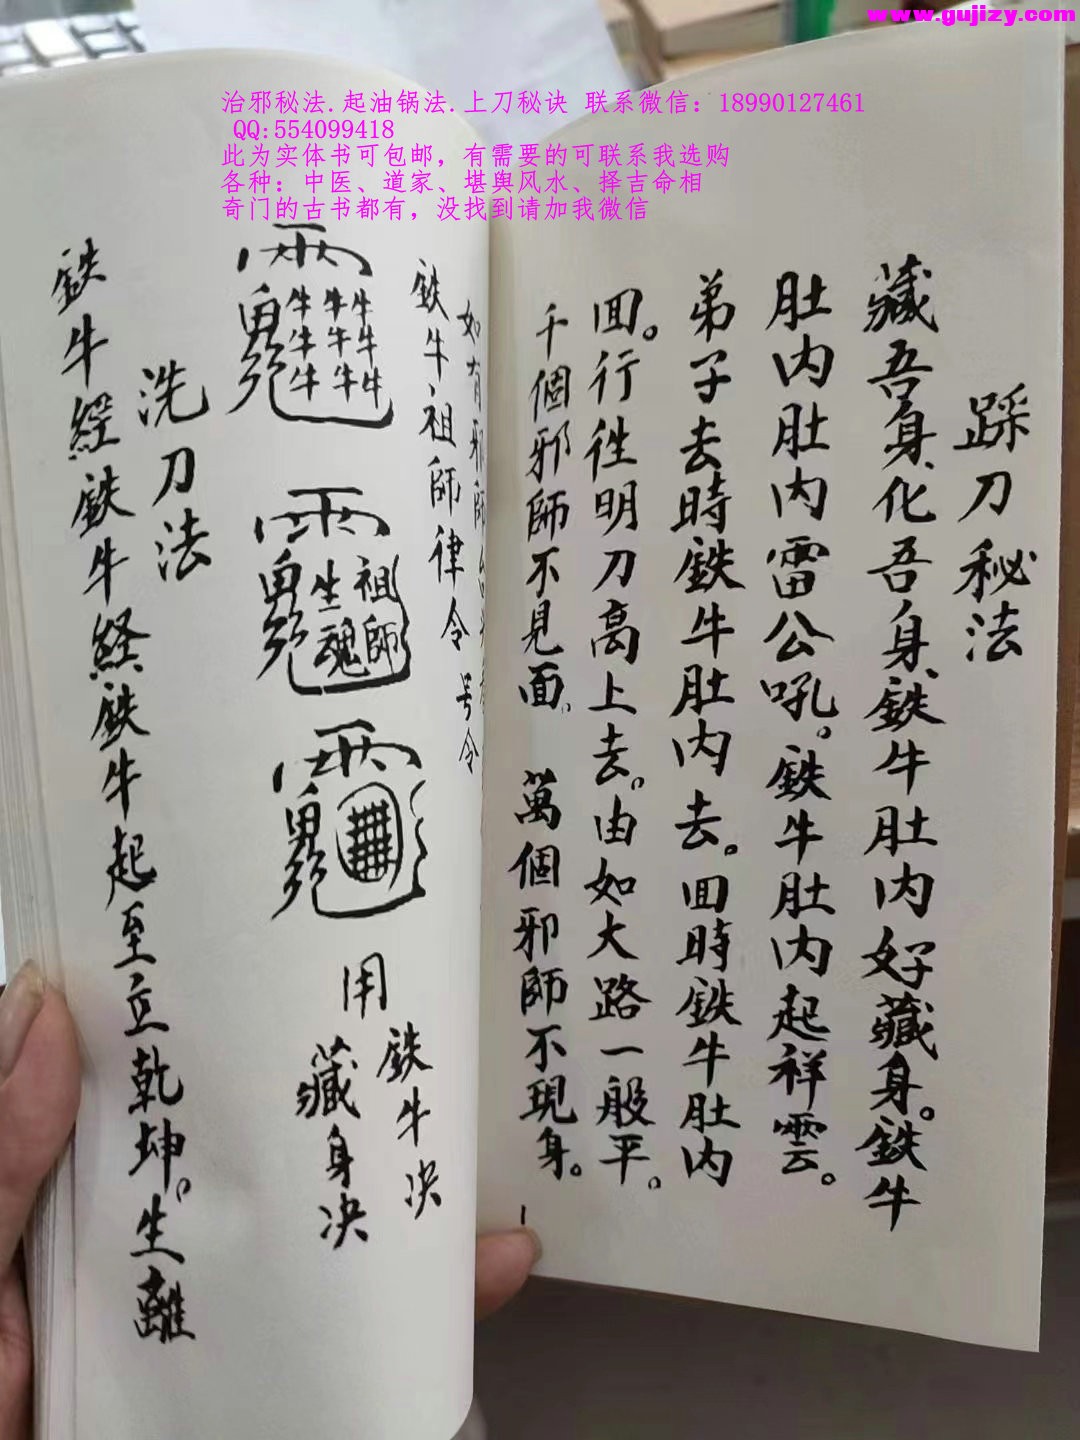 www.gujizy.com
治邪秘法.起油锅法.上刀秘诀 联系微信：18990127461
QQ:554099418
此为实体书可包邮，有需要的可联系我选购
各种：中医、道家、堪舆风水、择吉命相
奇门的古书都有，没找到请加我微信
踩刀秘法
藏吾身、化吾身、鉄牛肚内好藏身。鉄牛
肚内肚内雷公吼。鉄牛肚内起祥雲。
弟子去時鉄牛肚内去。回時鉄牛肚内
回。行徃明刀高上去。由如大路一般平。
千個邪師不見面。萬個邪師不現身。
1
如有邪師
鉄牛祖師律令 号令
牛牛牛牛牛牛牛牛牛
祖師
生魂
用
鉄牛决
藏身决
洗刀法
鉄牛經鉄牛経鉄牛起至立乾坤。生離